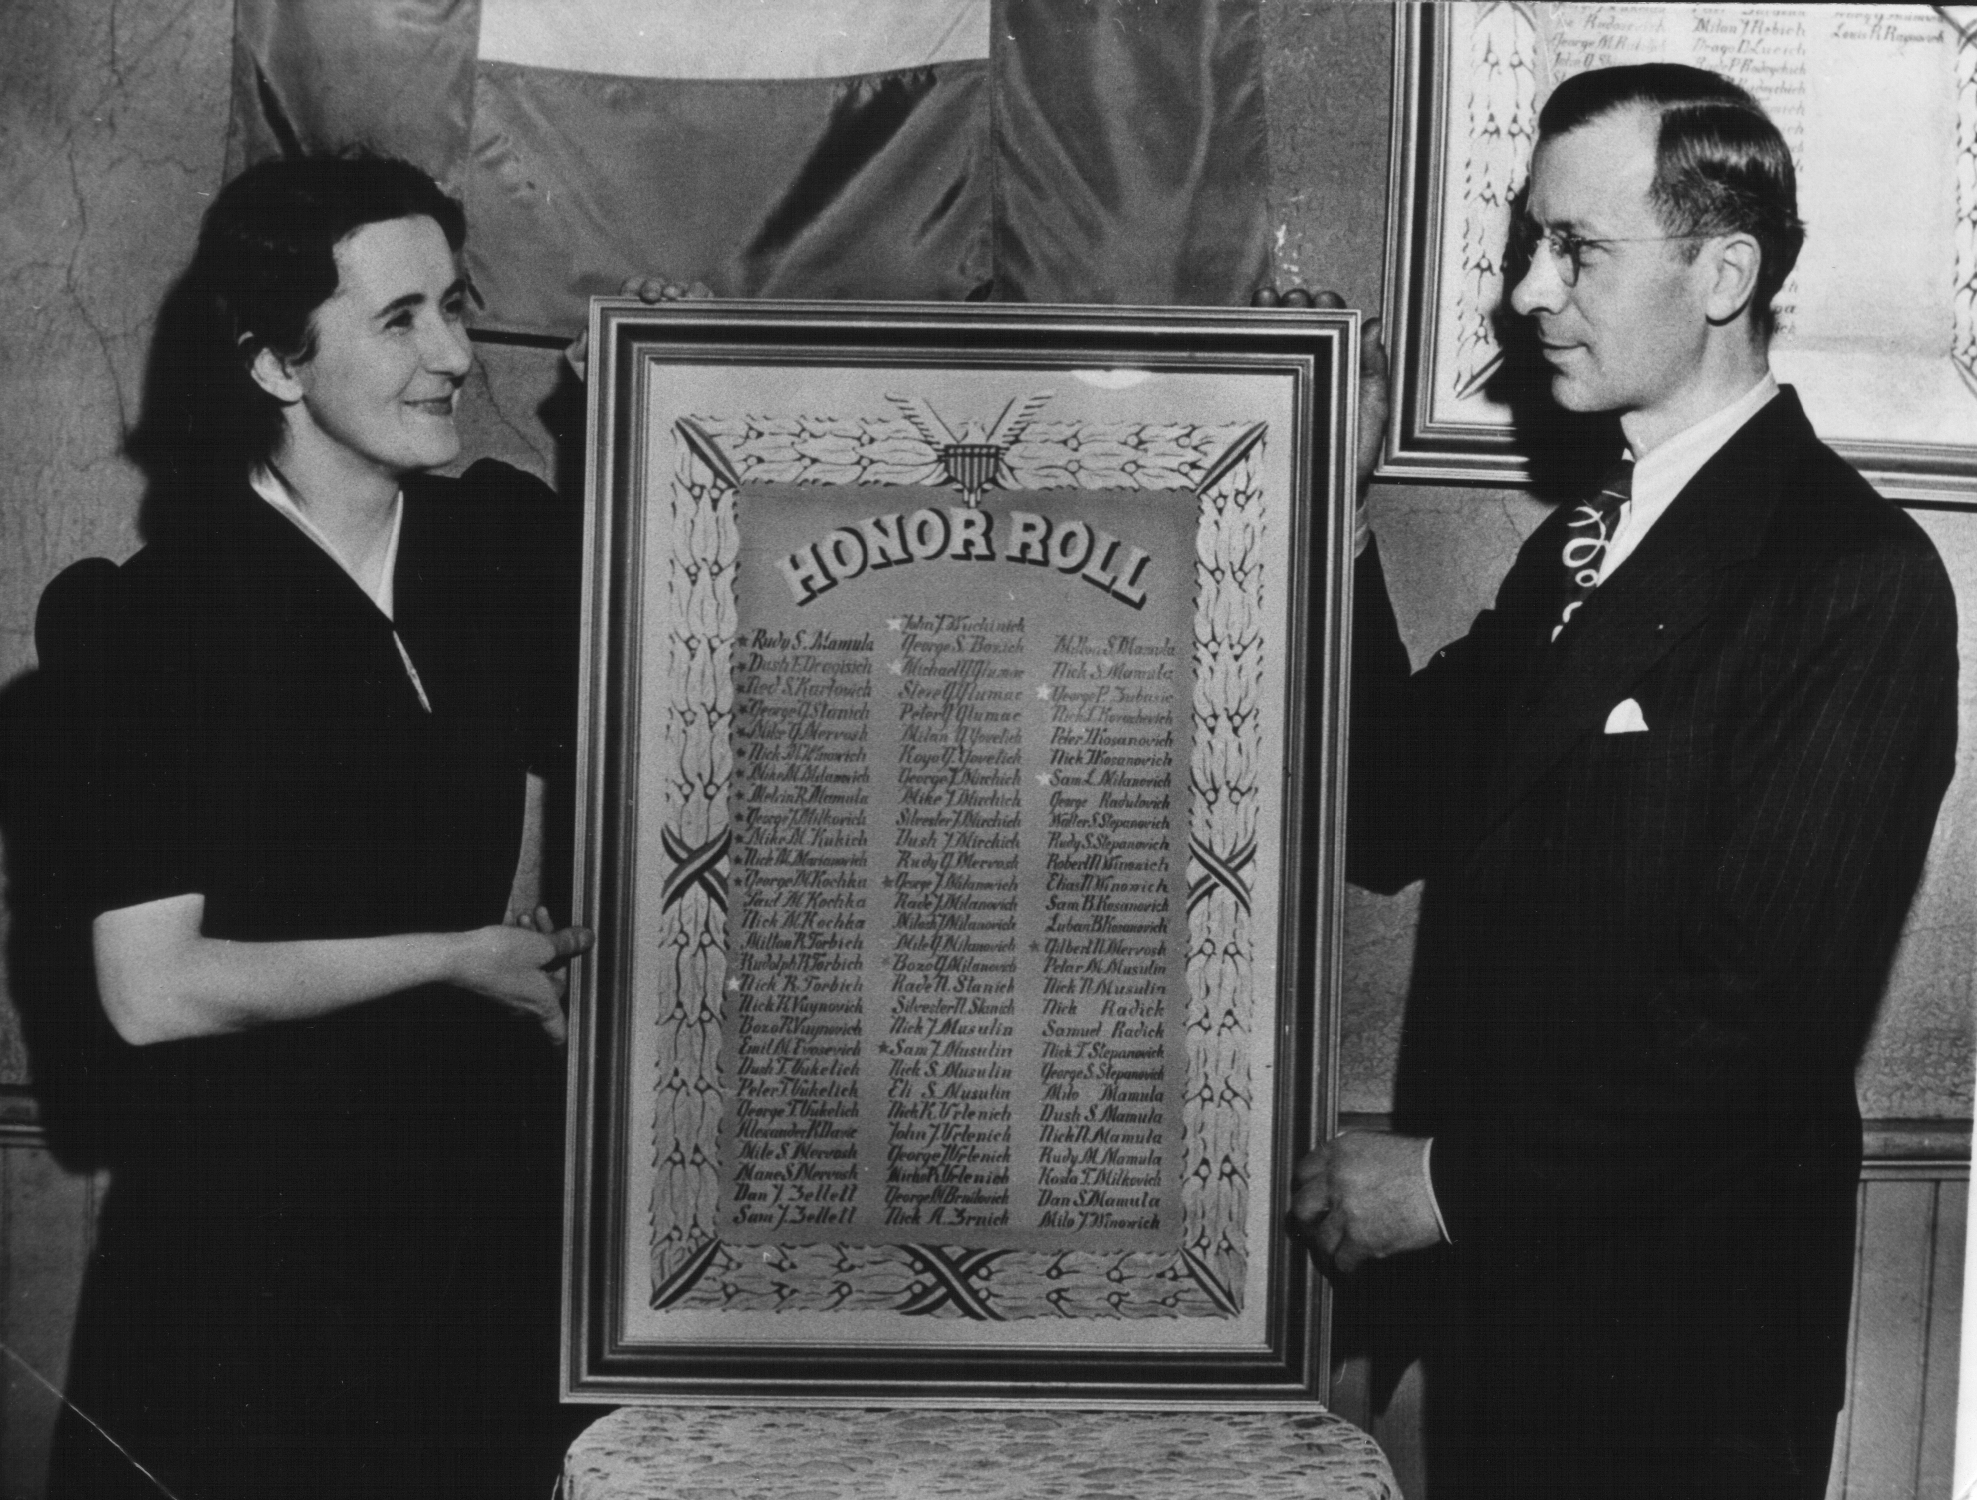 HONOR ROLL
* Rudy S. Mamula
* Dush E Dragisich
* Ned S. Karlovich
* George G. Stanich
* Mike G. Mervosh
* Nick M. Winovich
* Mike M. Milanovich
* Melvin R. Mamula
* George J. Milkovich
* Mike M. Kukich
* Nick M. Marianovich
* George M. Kochka
Paul M. Kochka
Nick M. Kochka
Milton R. Torbich
Rudolph R. Torbich
* Nick R. Torbich
Nick R. Vuynovich
Bozo R. Vuynovich
Emil M. Evosevich
Dush T. Vukelich
Peter T. Vukelich
George T. Vukelich
Alexander R. Davic
Mile S. Mervosh
Mane S. Mervosh
Dan J. Zellell
Sam J. Zellell
* John J. Vuchinich
George S. Bozich
* Michael G. Glumac
Steve G. Glumac
Peter G. Glumac
Milan G. Yovetich
Koyo G. Yovetich
George J. Mirchich
Mike J. Mirchich
Silvester J. Mirchich
Dush J. Mirchich
Rudy G. Mervosh
* George J. Milanovich
Rade J. Milanovich
Milosh J. Milanovich
Mile G. Milanovich
* Bozo G. Milanovich
Rade N. Stanich
Silvester N. Stanich
Nick J. Musulin
* Sam J. Musulin
Nick S. Musulin
Eli S. Musulin
Nick K. Vrlenich
John J. Vrlenich
George Vrlenich
Vrlenich
George M. Brnilovich
Nick A. Zrnich
Milton S. Mamula
Nick S. Mamula
* George P. Zubasic
Nick
Peter Kosanovich
Nick Kosanovich
* Sam L. Milanovich
George Radulovich
Walter S. Stepanovich
Rudy S. Stepanovich
Robert N. Winovich
Elias N. Winovich
Sam B. Kosanovich
Luban B. Kosanovich
* Gilbert N. Mervosh
Petar M. Musulin
Nick N. Musulin
Nick Radick
Samuel Radick
Nick T. Stepanovich
George S. Stepanovich
Milo Mamula
Dush S. Mamula
Nick N. Mamula
Rudy M. Mamula
Kosta T. Milkovich
Dan S. Mamula
Milo J. Winovich
Milan J. Rebich
Drago D. Lucich
Rade P. Radoychich